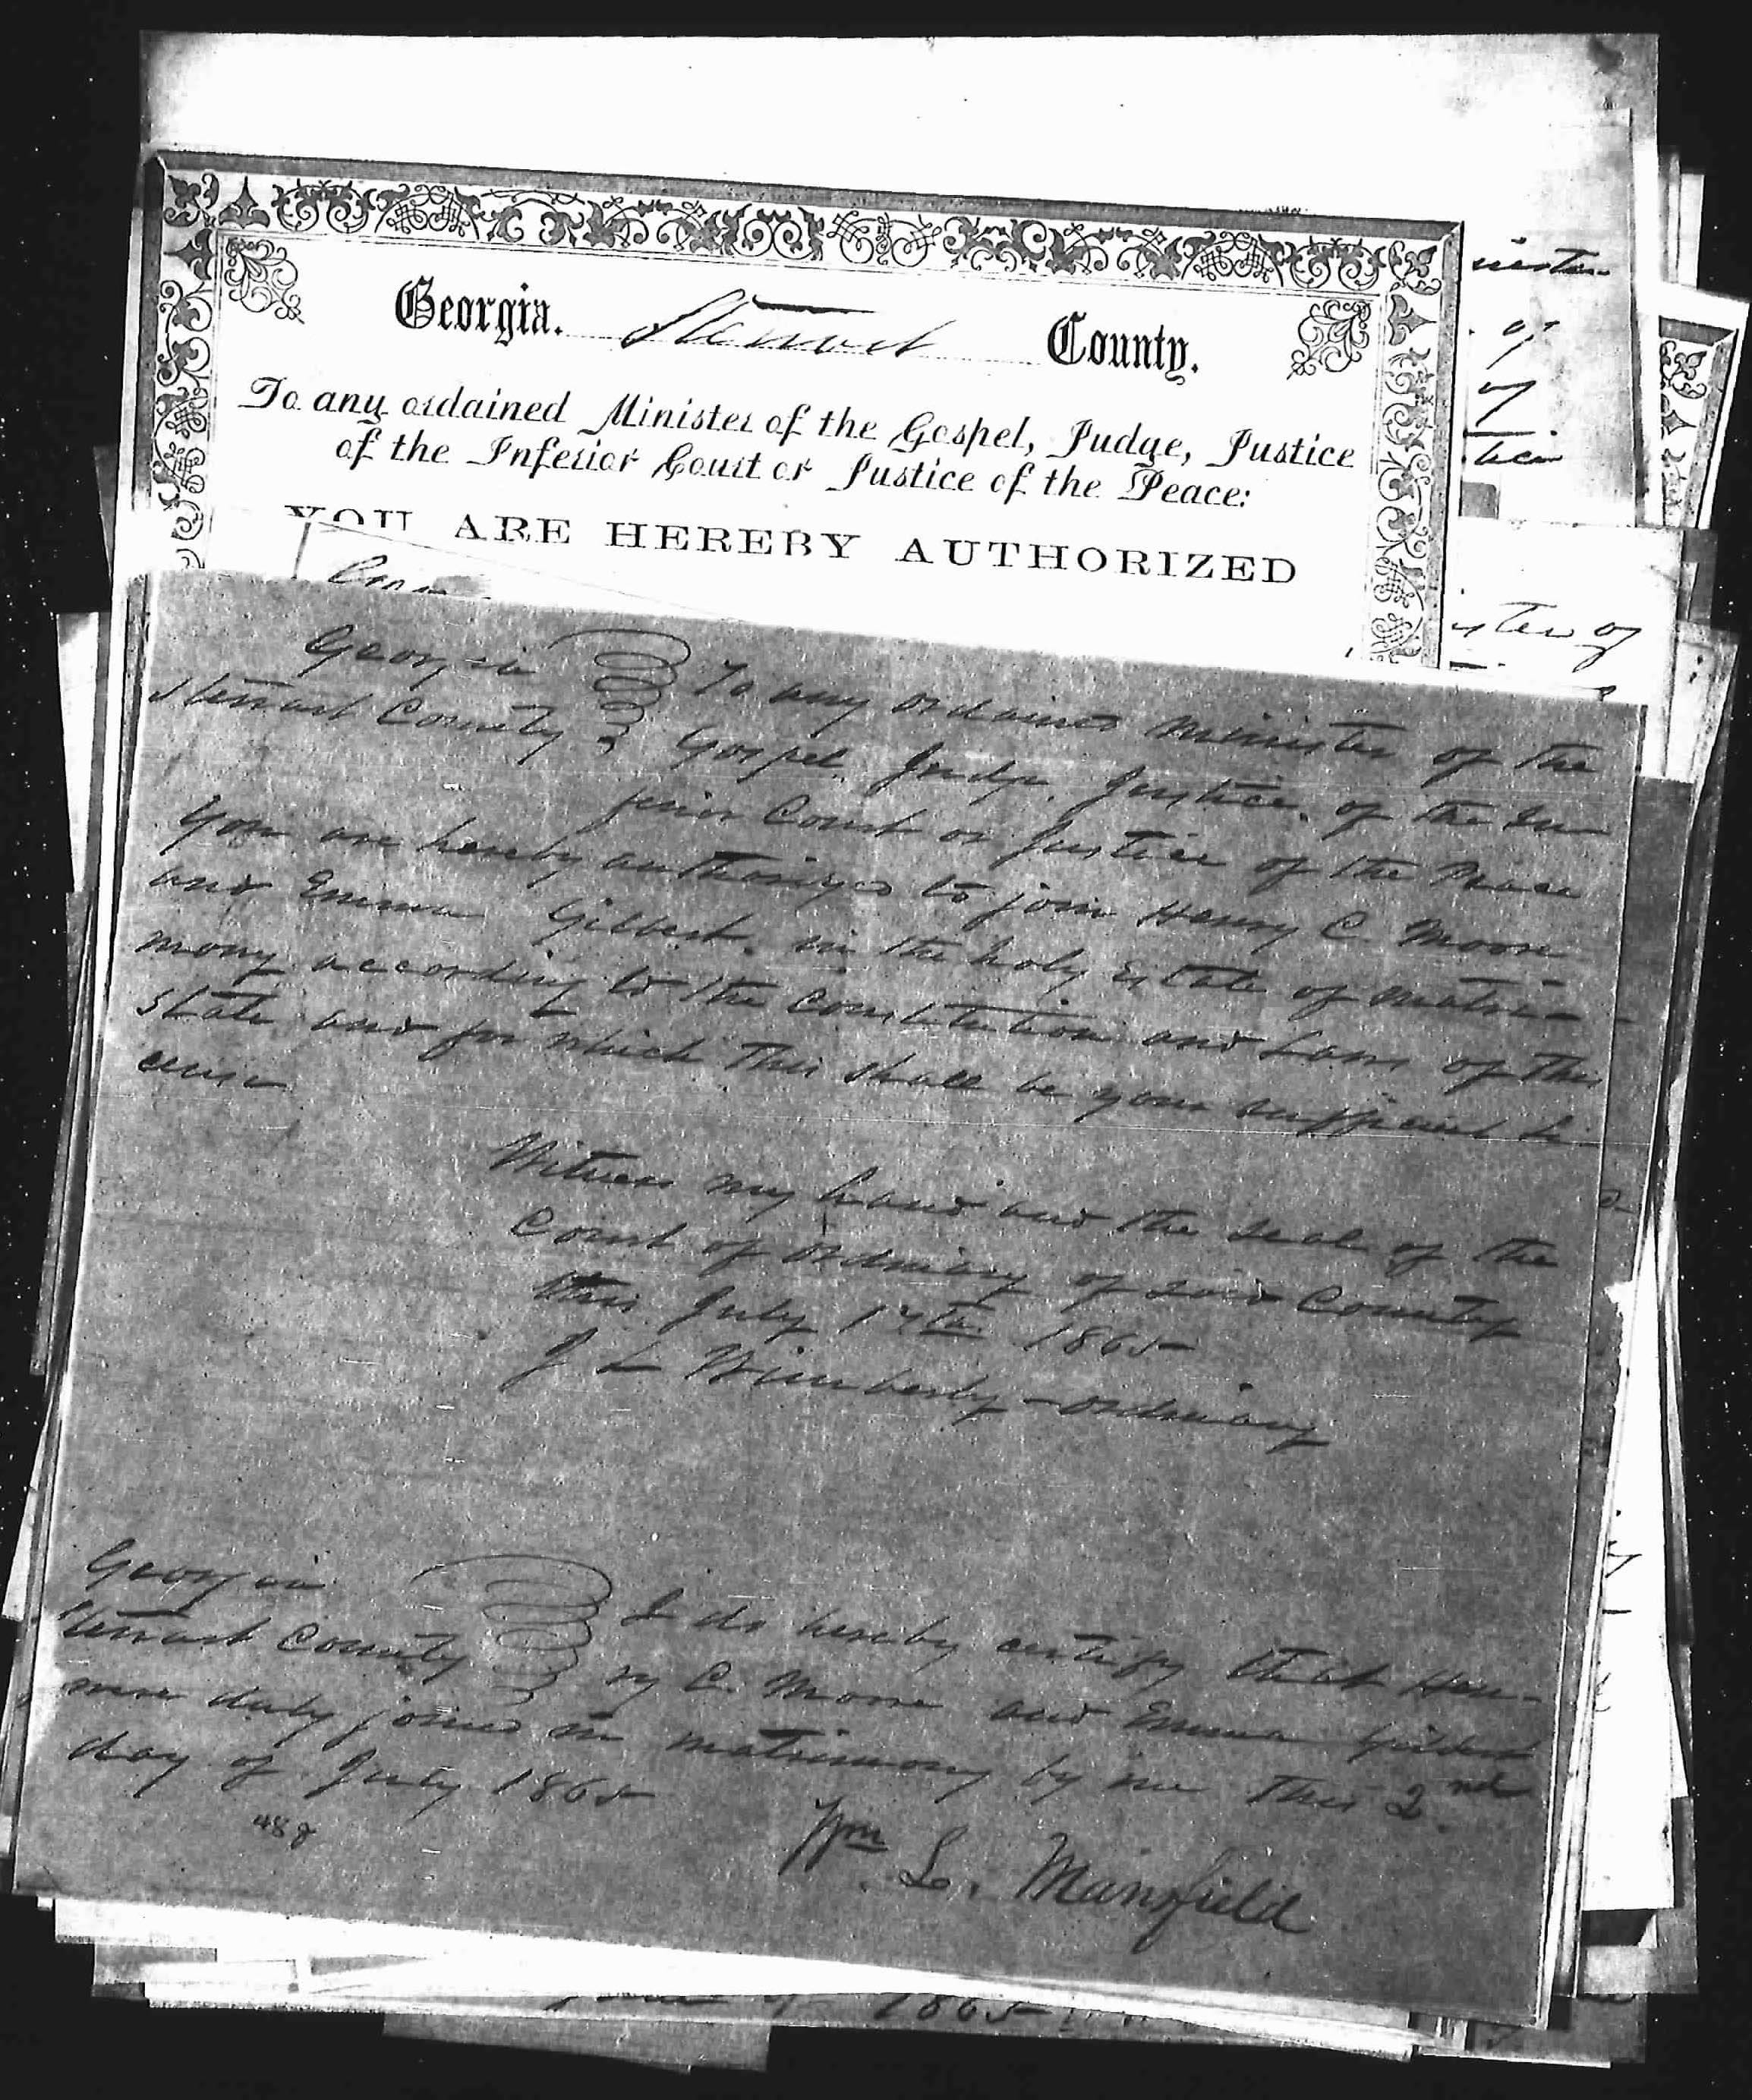 Georgia. Stewart County.
To any ordained Minister of the Gospel, Judge, Justice
of the Inferior Court or Justice of the Peace:
YOU ARE HEREBY AUTHORIZED
Georgia To any ordained Minister of the
Stewart County Gospel, Judge, Justice, of the In
ferior Court or Justice of the Peace
You are hereby authorized to join Henry C. Moore
and Emma Gilbert, in the holy Estate of Matri-
mony according to the Constitution and Laws of this
State and for which this shall be your sufficient li
cense
Witness my hand and the seal of the
Court of Ordinary of said County
this July 1865
J L Wimberly - Ordinary
Georgia I do hereby certify that Hen-
Stewart County ry C. Moore and Emma Gilbert
were duly joined in matrimony by me this 2nd
day of July 1865
488
Wm L. Mansfield
1865